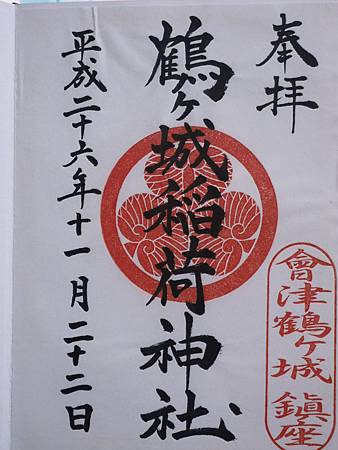 奉拝
會津鶴ヶ城鎮座
鶴ヶ城稲荷神社
平成二十六年十一月二十二日